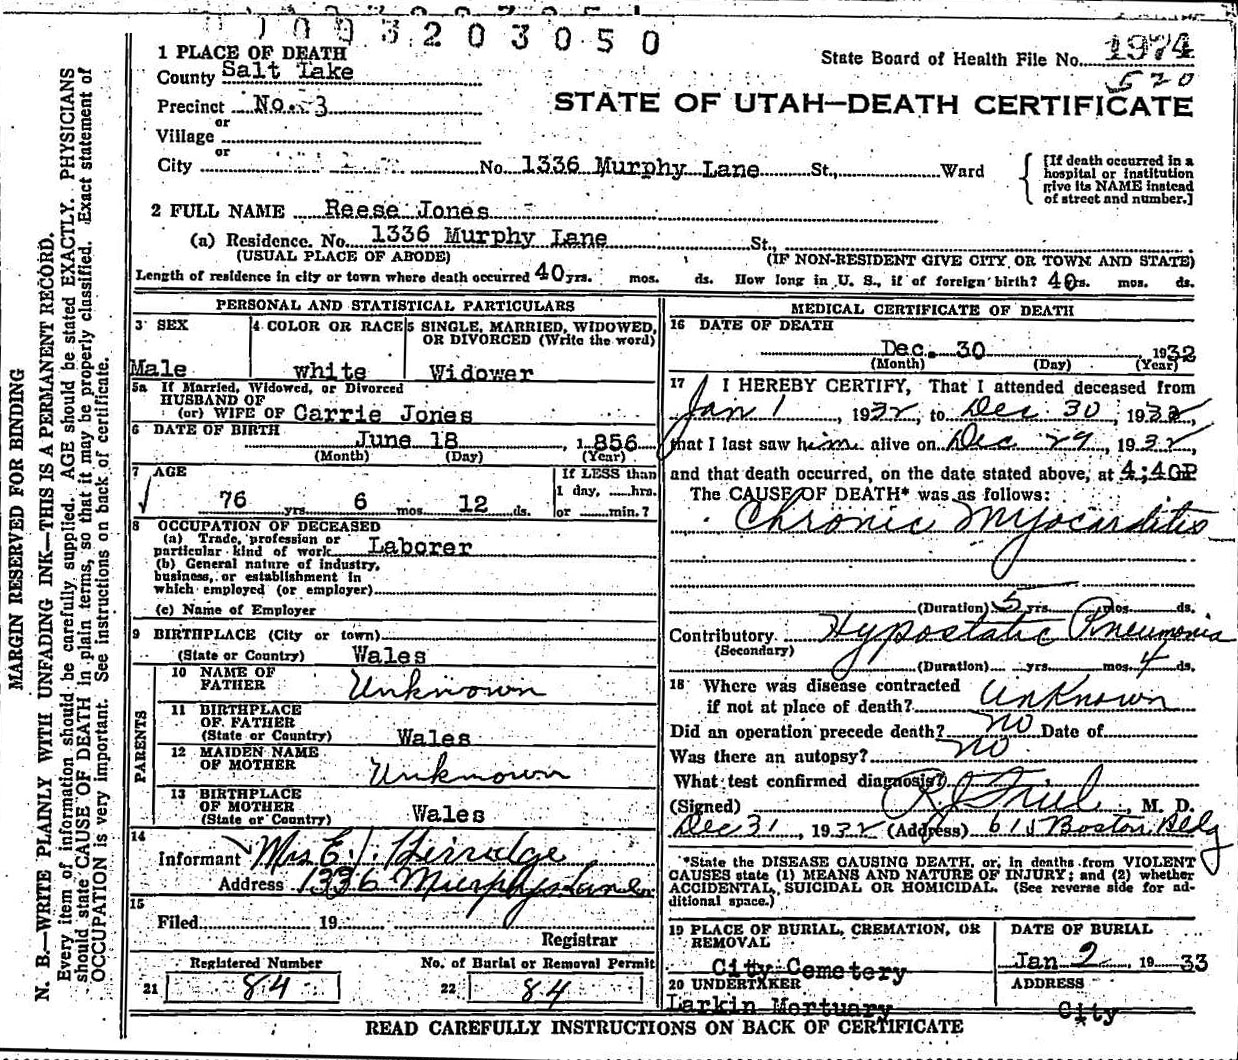 1003203050
1 PLACE OF DEATH
County Salt Lake
State Board of Health File No. 1974
520
Precinct No. 3
STATE OF UTAH—DEATH CERTIFICATE
or
Village
or
City No. 1336 Murphy Lane St., Ward
[If death occurred in a
hospital or institution
give its NAME instead
of street and number.]
2 FULL NAME Reese Jones
(a) Residence. No. 1336 Murphy Lane St.,
(USUAL PLACE OF ABODE) (IF NON-RESIDENT GIVE CITY OR TOWN AND STATE)
Length of residence in city or town where death occurred 40 yrs. mos. ds. How long in U. S., if of foreign birth? 40 yrs. mos. ds.
PERSONAL AND STATISTICAL PARTICULARS
3 SEX
Male
4 COLOR OR RACE
white
5 SINGLE, MARRIED, WIDOWED,
OR DIVORCED (Write the word)
Widower
5a If Married, Widowed, or Divorced
HUSBAND OF
(or) WIFE OF Carrie Jones
6 DATE OF BIRTH
June 18, 1856
(Month) (Day) (Year)
7 AGE
76 yrs. 6 mos. 12 ds.
If LESS than
1 day, hrs.
or min.?
8 OCCUPATION OF DECEASED
(a) Trade, profession or
particular kind of work Laborer
(b) General nature of industry,
business, or establishment in
which employed (or employer)
(c) Name of Employer
9 BIRTHPLACE (City or town)
(State or Country) Wales
PARENTS
10 NAME OF
FATHER Unknown
11 BIRTHPLACE
OF FATHER
(State or Country) Wales
12 MAIDEN NAME
OF MOTHER Unknown
13 BIRTHPLACE
OF MOTHER
(State or Country) Wales
14
Informant Mrs E. J. Herridge
Address 1336 Murphys Lane
15
Filed 19
Registrar
Registered Number
21 84
No. of Burial or Removal Permit
22 84
MEDICAL CERTIFICATE OF DEATH
16 DATE OF DEATH
Dec. 30 1932
(Month) (Day) (Year)
17 I HEREBY CERTIFY, That I attended deceased from
Jan 1, 1932, to Dec 30, 1932,
that I last saw him alive on Dec 29, 1932,
and that death occurred, on the date stated above, at 4:40P
The CAUSE OF DEATH* was as follows:
Chronic Myocarditis
(Duration) 5 yrs. mos. ds.
Contributory Hypostatic Pneumonia
(Secondary)
(Duration) yrs. mos. 4 ds.
18 Where was disease contracted
if not at place of death? Unknown
Did an operation precede death? no Date of
Was there an autopsy? no
What test confirmed diagnosis?
(Signed) , M. D.
Dec 31, 1932 (Address) 615 Boston Bldg
*State the DISEASE CAUSING DEATH, or, in deaths from VIOLENT
CAUSES state (1) MEANS AND NATURE OF INJURY; and (2) whether
ACCIDENTAL, SUICIDAL OR HOMICIDAL. (See reverse side for ad-
ditional space.)
19 PLACE OF BURIAL, CREMATION, OR
REMOVAL
City Cemetery
DATE OF BURIAL
Jan 2, 1933
20 UNDERTAKER
Larkin Mortuary
ADDRESS
City
READ CAREFULLY INSTRUCTIONS ON BACK OF CERTIFICATE
MARGIN RESERVED FOR BINDING
N. B.—WRITE PLAINLY WITH UNFADING INK—THIS IS A PERMANENT RECORD.
Every item of information should be carefully supplied. AGE should be stated EXACTLY. PHYSICIANS
should state CAUSE OF DEATH in plain terms, so that it may be properly classified. Exact statement of
OCCUPATION is very important. See instructions on back of certificate.